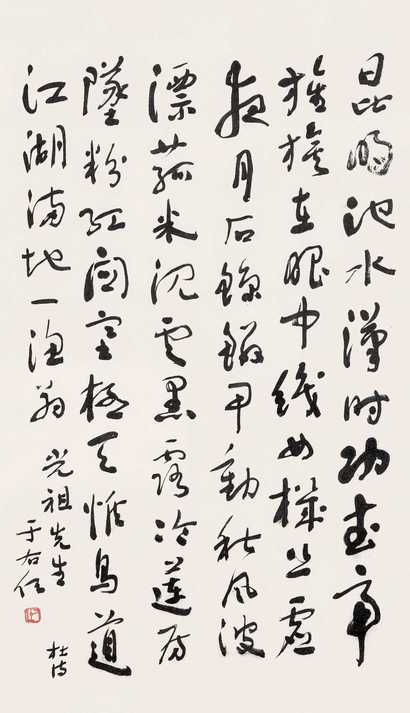 昆明池水漢時功武帝
旌旗在眼中織女機絲虛
夜月石鯨鱗甲動秋風波
漂菰米沈雲黑露冷蓮房
墜粉紅關塞極天惟鳥道
江湖滿地一漁翁
光祖先生
杜詩
于右任